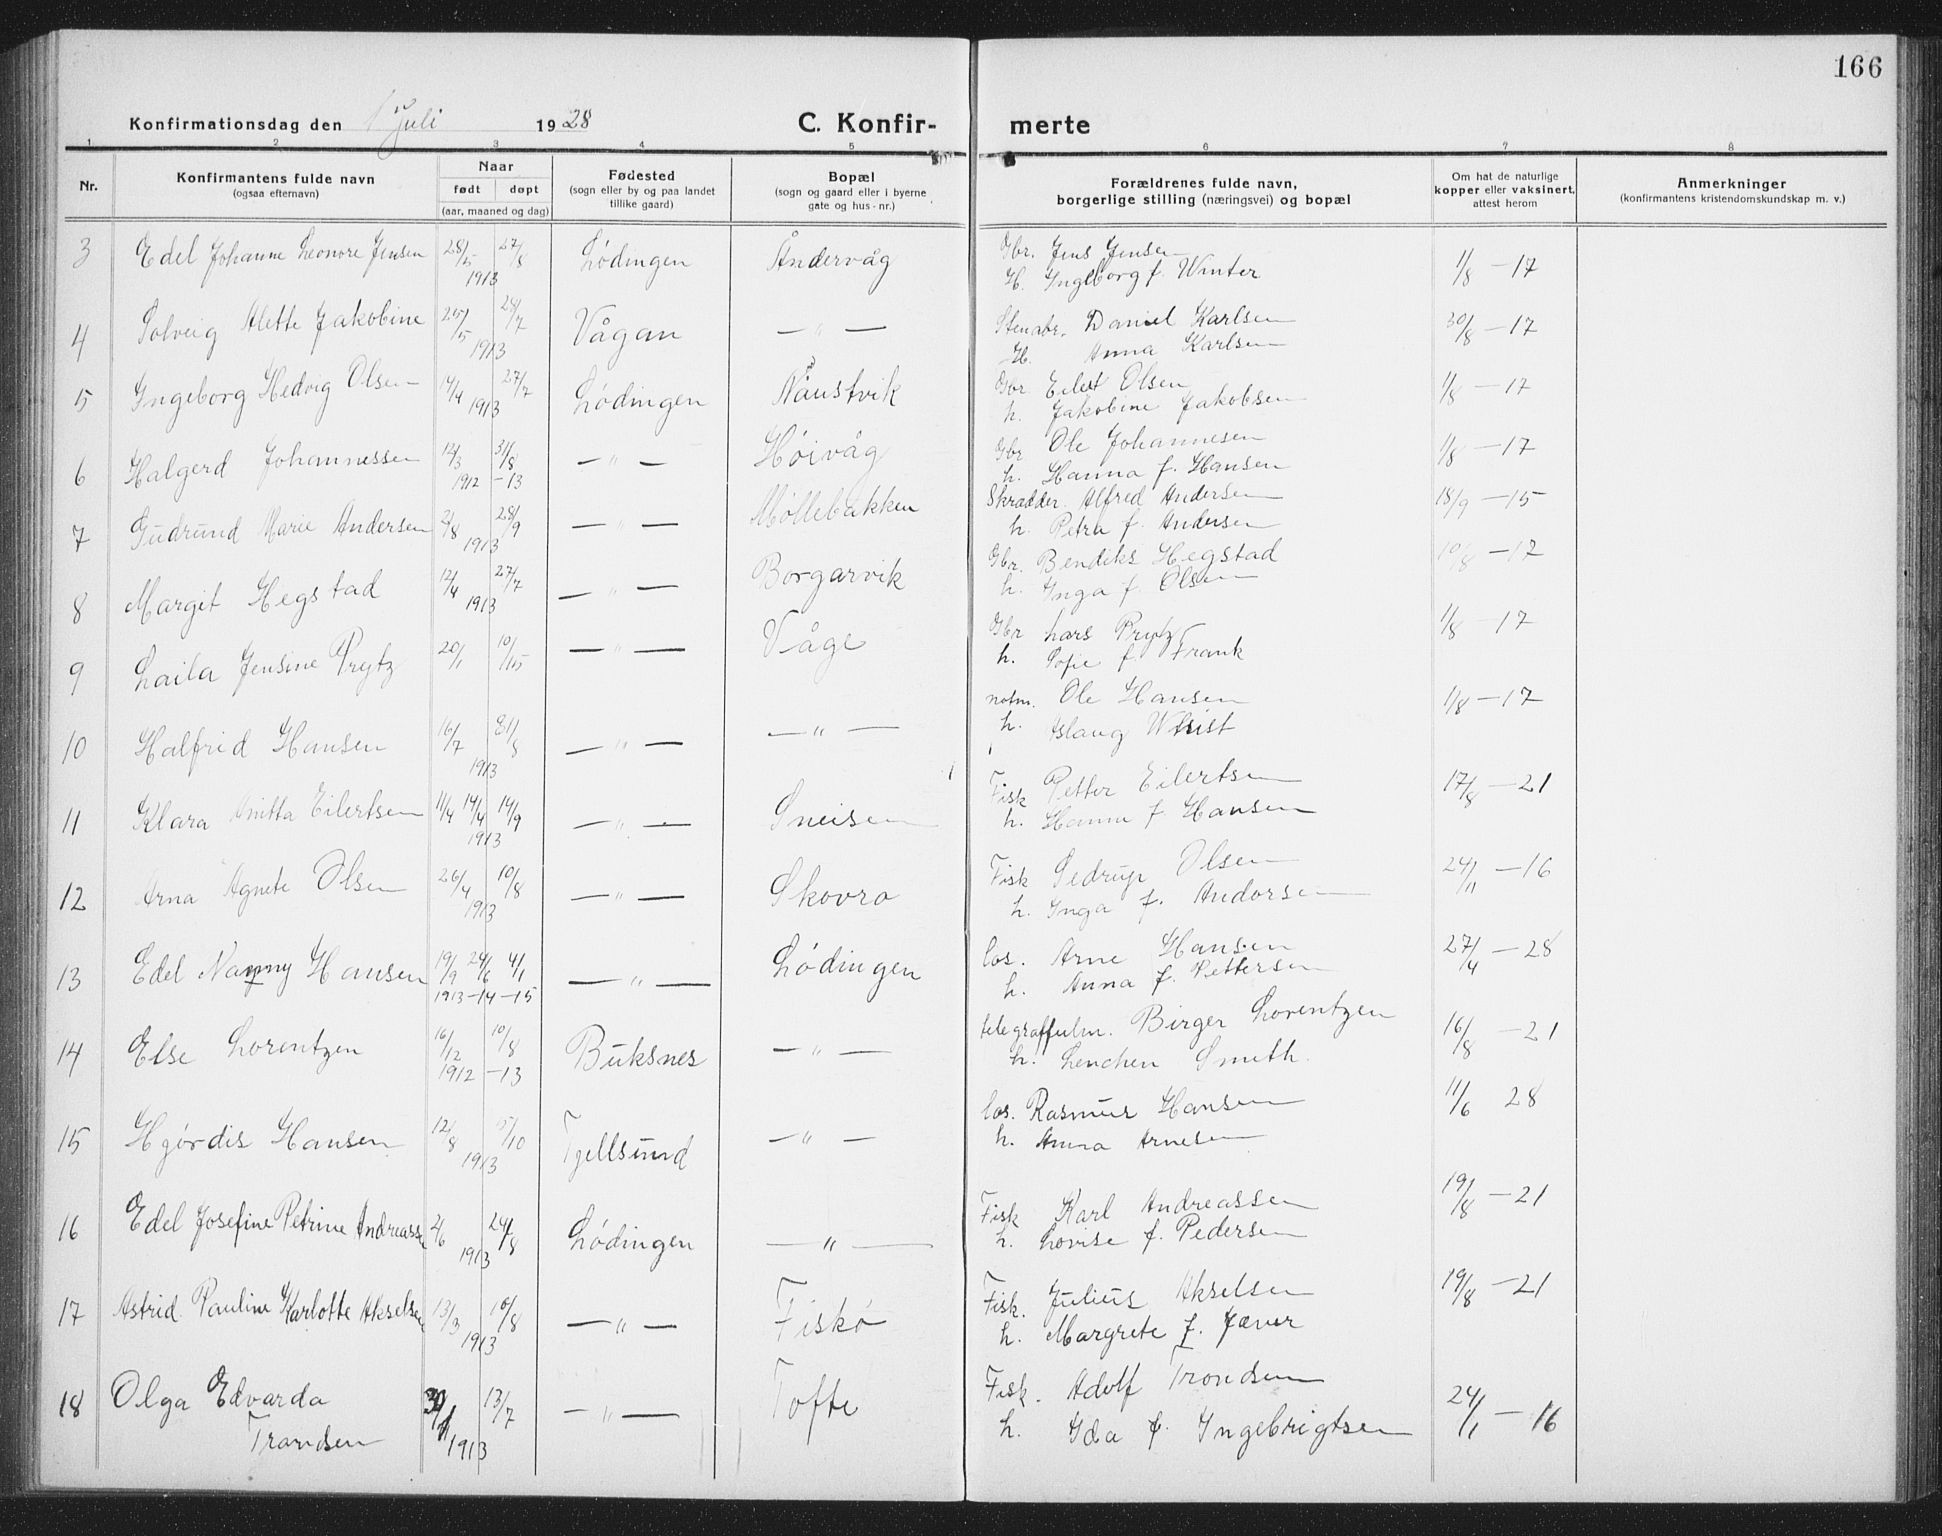 166
Konfirmationsdag den 1 Juli 1928
C. Konfir- merte
1 2 3 4 5 6 7 8
Nr. Konfirmantens fulde navn (ogsaa efternavn) Naar født døpt (aar, maaned og dag) Fødested (sogn eller by og paa landet tillike gaard) Bopæl (sogn og gaard eller i byerne gate og hus-nr.) Forældrenes fulde navn, borgerlige stilling (næringsvei) og bopæl Om hat de naturlige kopper eller vaksinert, attest herom Anmerkninger (konfirmantens kristendomskundskap m. v.)
3 Edel Johanne Leonore Jensen 28/5 1913 27/8 Lødingen Åndervåg Gbr. Jens Jensen 1/8 - 17
H. Ingeborg f. Winter
4 Solveig Alette Jakobine 25/5 1913 28/7 Vågan — " — Stenarb. Daniel Karlsen 30/8 - 17
H. Anna Karlsen
5 Ingeborg Hedvig Olsen 14/4 1913 27/7 Lødingen Naustvik Gbr Eilert Olsen 1/8 - 17
h. Jakobine Jakobsen
6 Halgerd Johannessen 12/3 1912 31/8 -13 — " — Høivåg Gbr Ole Johannesen 1/8 - 17
h. Hanna f. Hansen
7 Gudrund Marie Andersen 2/8 1913 28/9 — " — Møllebakken Skrædder. Alfred Andersen 18/9 - 15
h. Petra f. Andersen
8 Margit Hegstad 12/4 1913 27/7 — " — Borgarvik Gbr. Bendiks Hegstad 10/8 - 17
h. Inga f. Olsen
9 Laila Jensine Prytz 20/1 10/15 — " — Våge Gbr Lars Prytz 1/8 - 17
h. Sofie f. Frank
10 Halfrid Hansen 16/7 1913 31/8 — " — — " — notm. Ole Hansen 1/8 - 17
h. Aslaug
11 Klara Anitta Eilertsen 11/4 14/4 1913 14/9 — " — Sneisen Fisk Petter Eilertsen 17/8 - 21
h. Hanna f Hansen
12 Arna Agnete Olsen 26/4 1913 10/8 — " — Skovro Fisk Sedrup Olsen 24/11 - 16
h. Inga f. Andorsen
13 Edel Nanny Hansen 19/9 24/6 4/1 1913 -14 -15 — " — Lødingen los. Arne Hansen 27/4 - 28
h. Anna f. Pettersen
14 Else Lorentzen 16/12 1912 10/8 -13 Buksnes — " — Birger Lorentzen 16/8 - 21
h. Lenchen Smith.
15 Hjørdis Hansen 12/8 1913 5/10 Tjellsund — " — los. Rasmus Hansen 11/6 28
h. Anna Arnesen
16 Edel Josefine Petrine Andreassen 2/6 1913 24/8 Lødingen — " — Fisk Karl Andreassen 19/8 - 21
h. Lovise f. Pedersen
17 Astrid Pauline Karlotte Akselsen 13/3 1913 10/8 — " — Fiskø Fisk. Julius Akselsen 19/8 - 21
h. Margrete f. Jæver
18 Olga Edvarda 1913 13/7 — " — Tofte Fisk. Adolf Trondsen 24/1 - 16
Trondsen h. Ida f. Ingebrigtsen